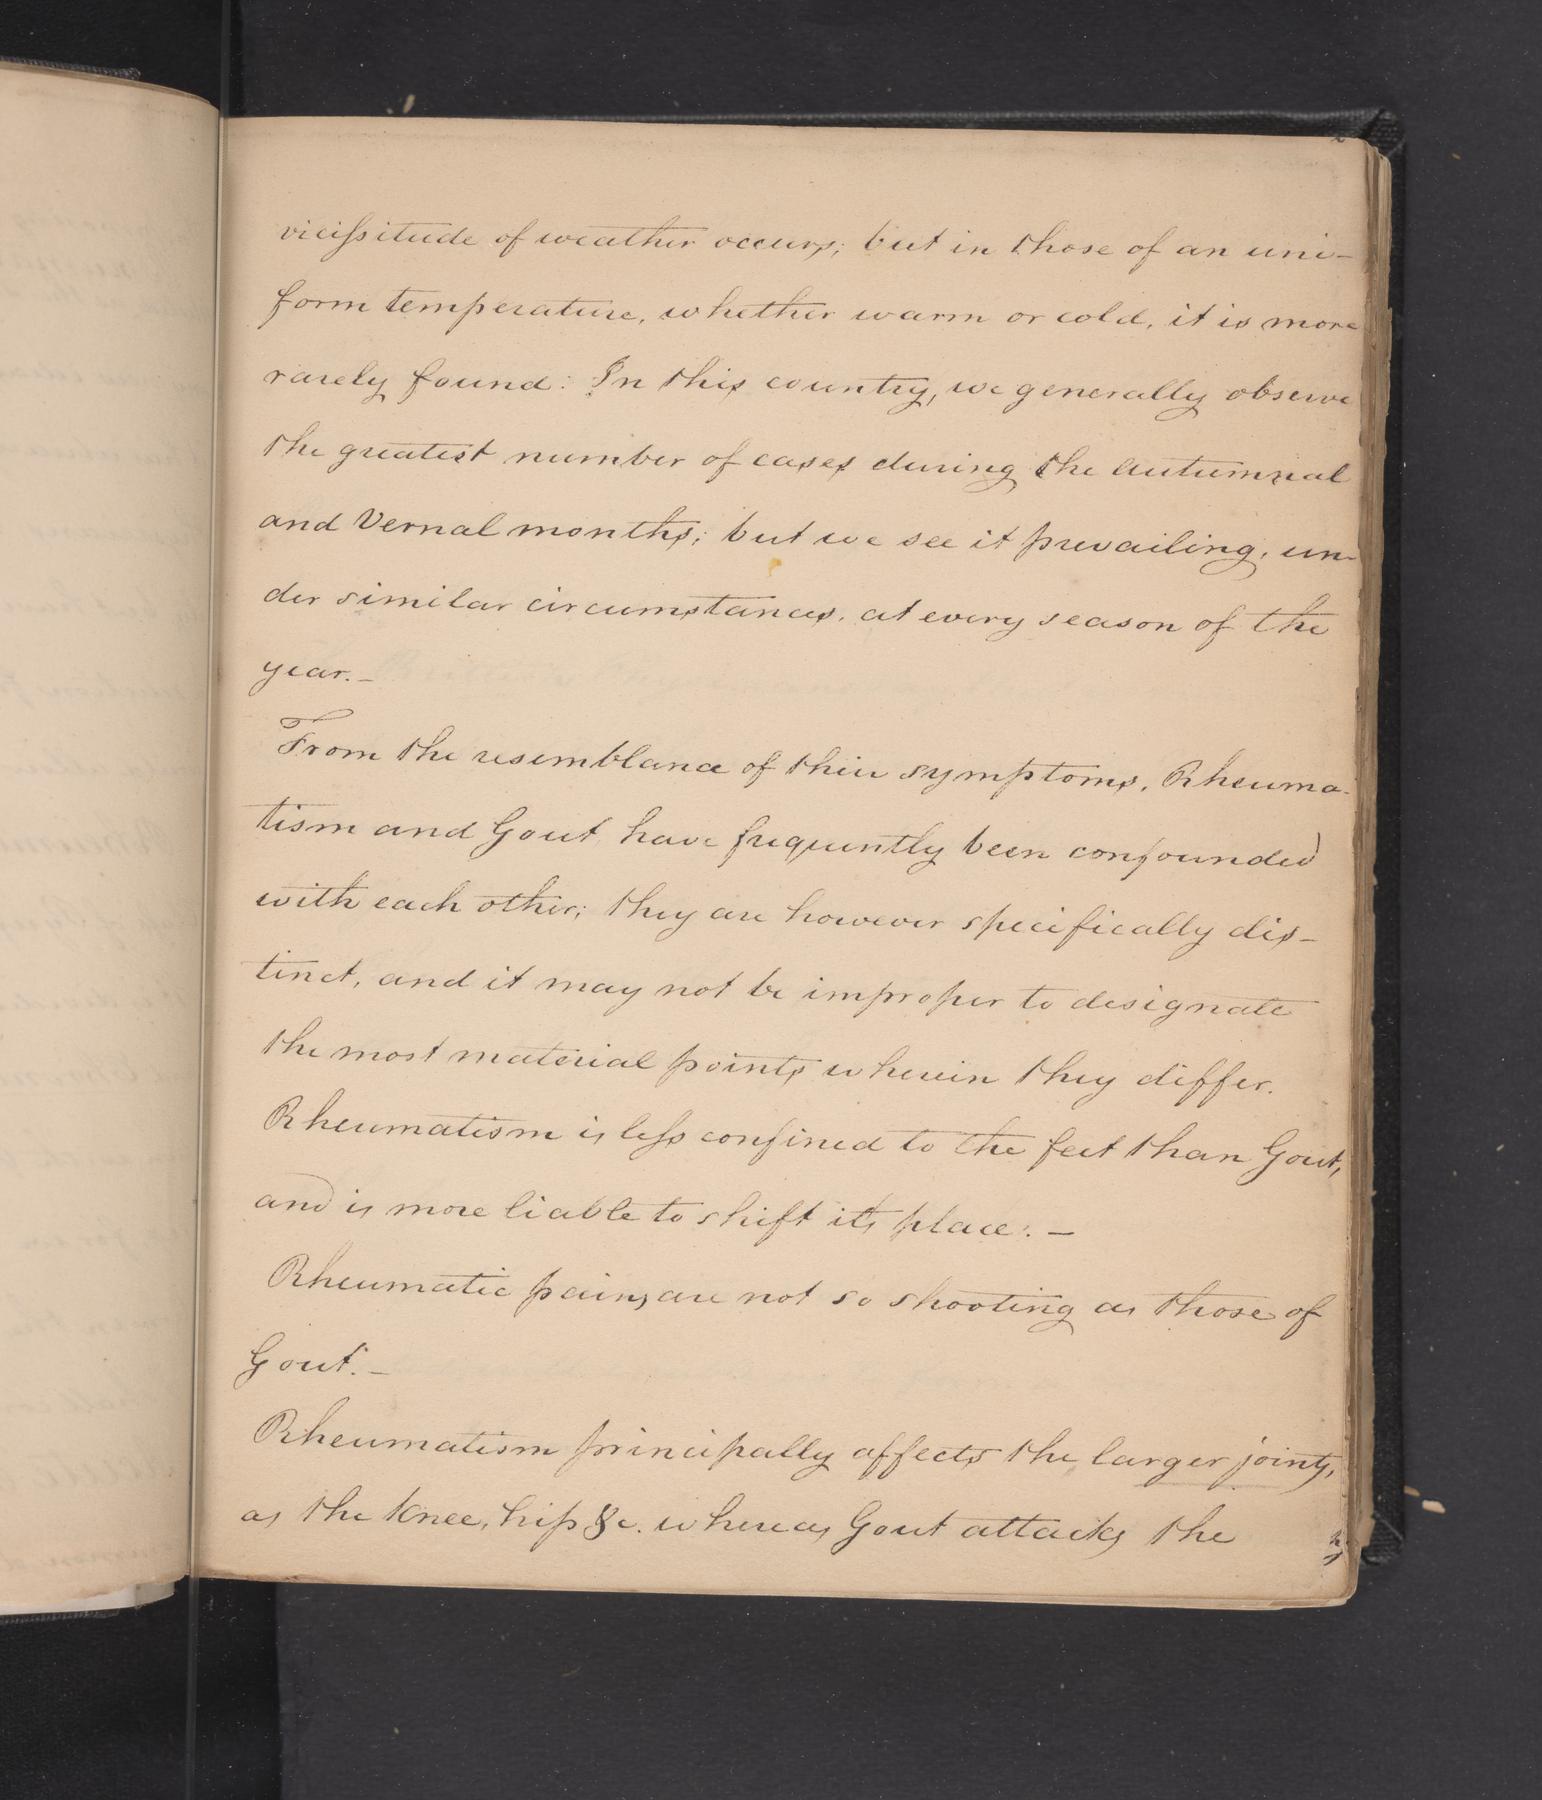 vicissitude of weather occurs; but in those of an uni-
form temperature, whether warm or cold, it is more
rarely found: In this country, we generally observe
the greatest number of cases during the autumnal
and Vernal months; but we see it prevailing, un-
der similar circumstances, at every season of the
year.-
From the resemblance of their symptoms, Rheuma-
tism and Gout have frequently been confounded
with each other; they are however specifically dis-
tinct, and it may not be improper to designate
the most material points wherein they differ.
Rheumatism is less confined to the feet than Gout,
and is more liable to shift its place:-
Rheumatic pains are not so shooting as those of
Gout.-
Rheumatism principally affects the larger joints,
as the knee, hip &c. whereas Gout attacks the